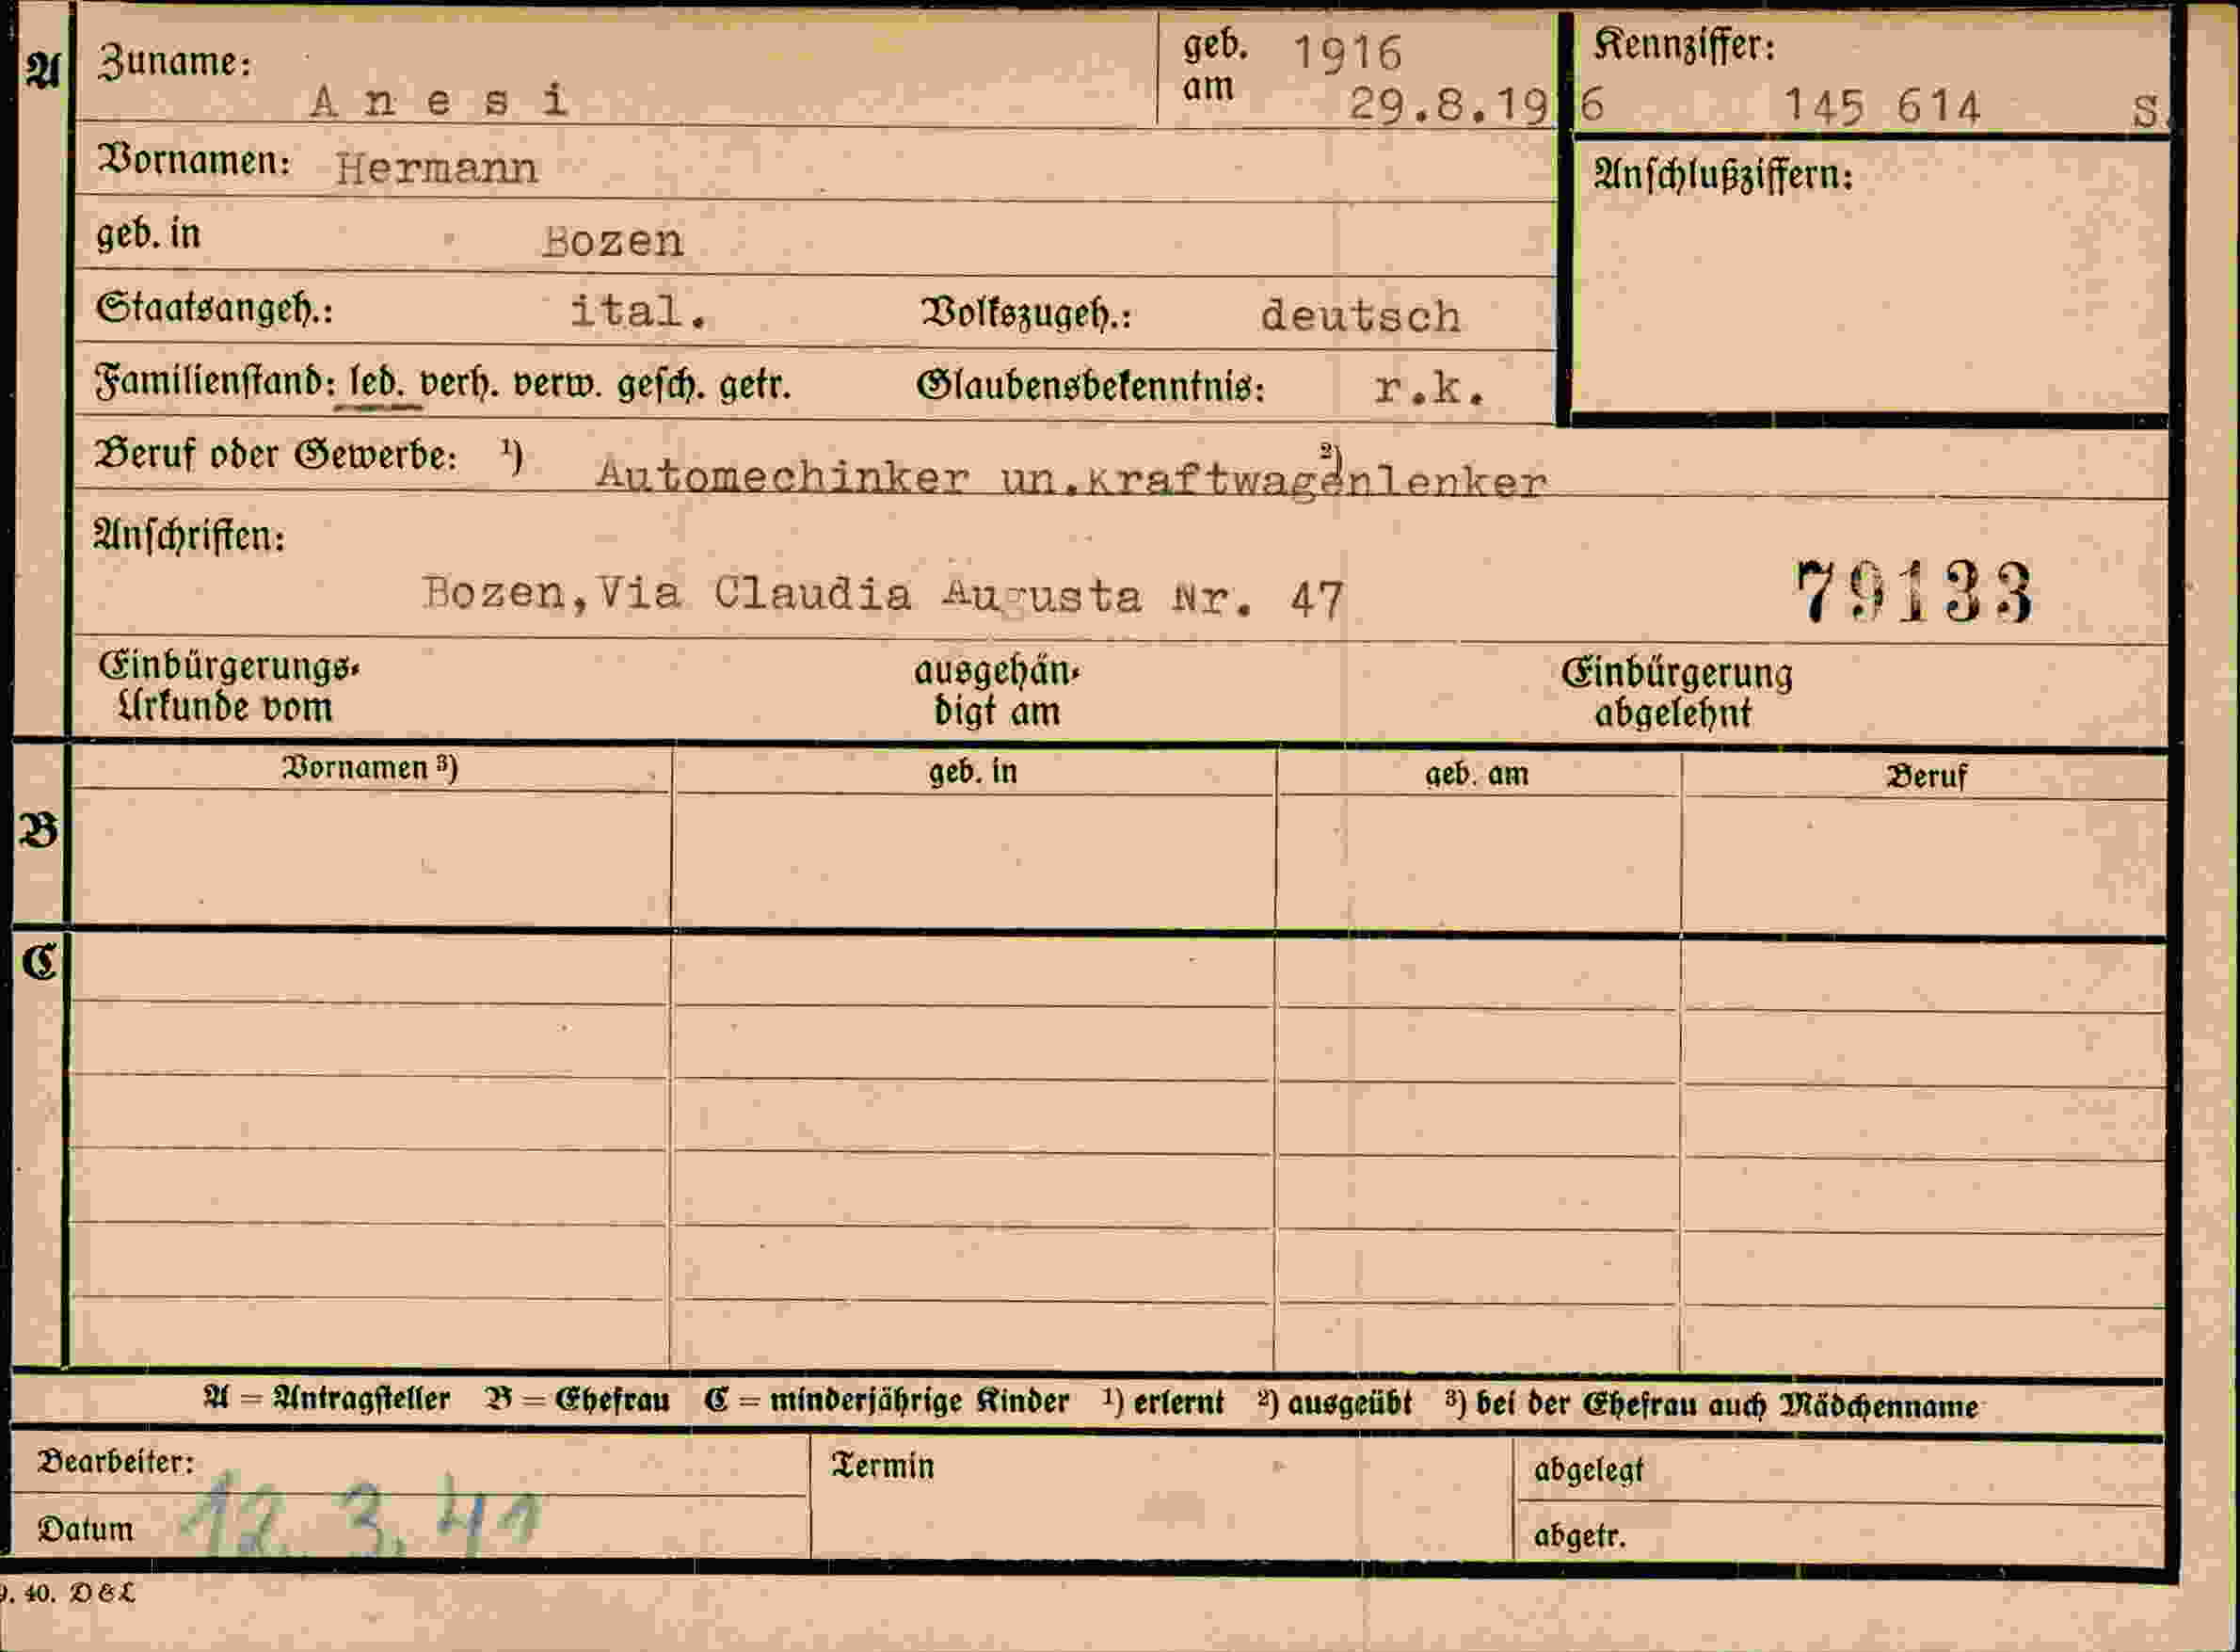 A Zuname: A n e s i
geb. am 1916
29.8.19 6
Kennziffer: 145 614 S.
Vornamen: Hermann
Anschlußziffern:
geb. in Bozen
Staatsangeh.: ital. Volkszugeh.: deutsch
Familienstand: led. verh. verw. gesch. getr. Glaubensbekenntnis: r.k.
Beruf oder Gewerbe: ¹) Automechinker un.Kraftwagenlenker ²)
Anschriften:
Bozen,Via Claudia Augusta Nr. 47
79133
Einbürgerungs-
Urkunde vom
ausgehän-
digt am
Einbürgerung
abgelehnt
B Vornamen ³) geb. in geb. am Beruf
C
A = Antragsteller B = Ehefrau C = minderjährige Kinder ¹) erlernt ²) ausgeübt ³) bei der Ehefrau auch Mädchenname
Bearbeiter: Termin abgelegt
Datum 12.3.41 abgetr.
9. 40. D & L